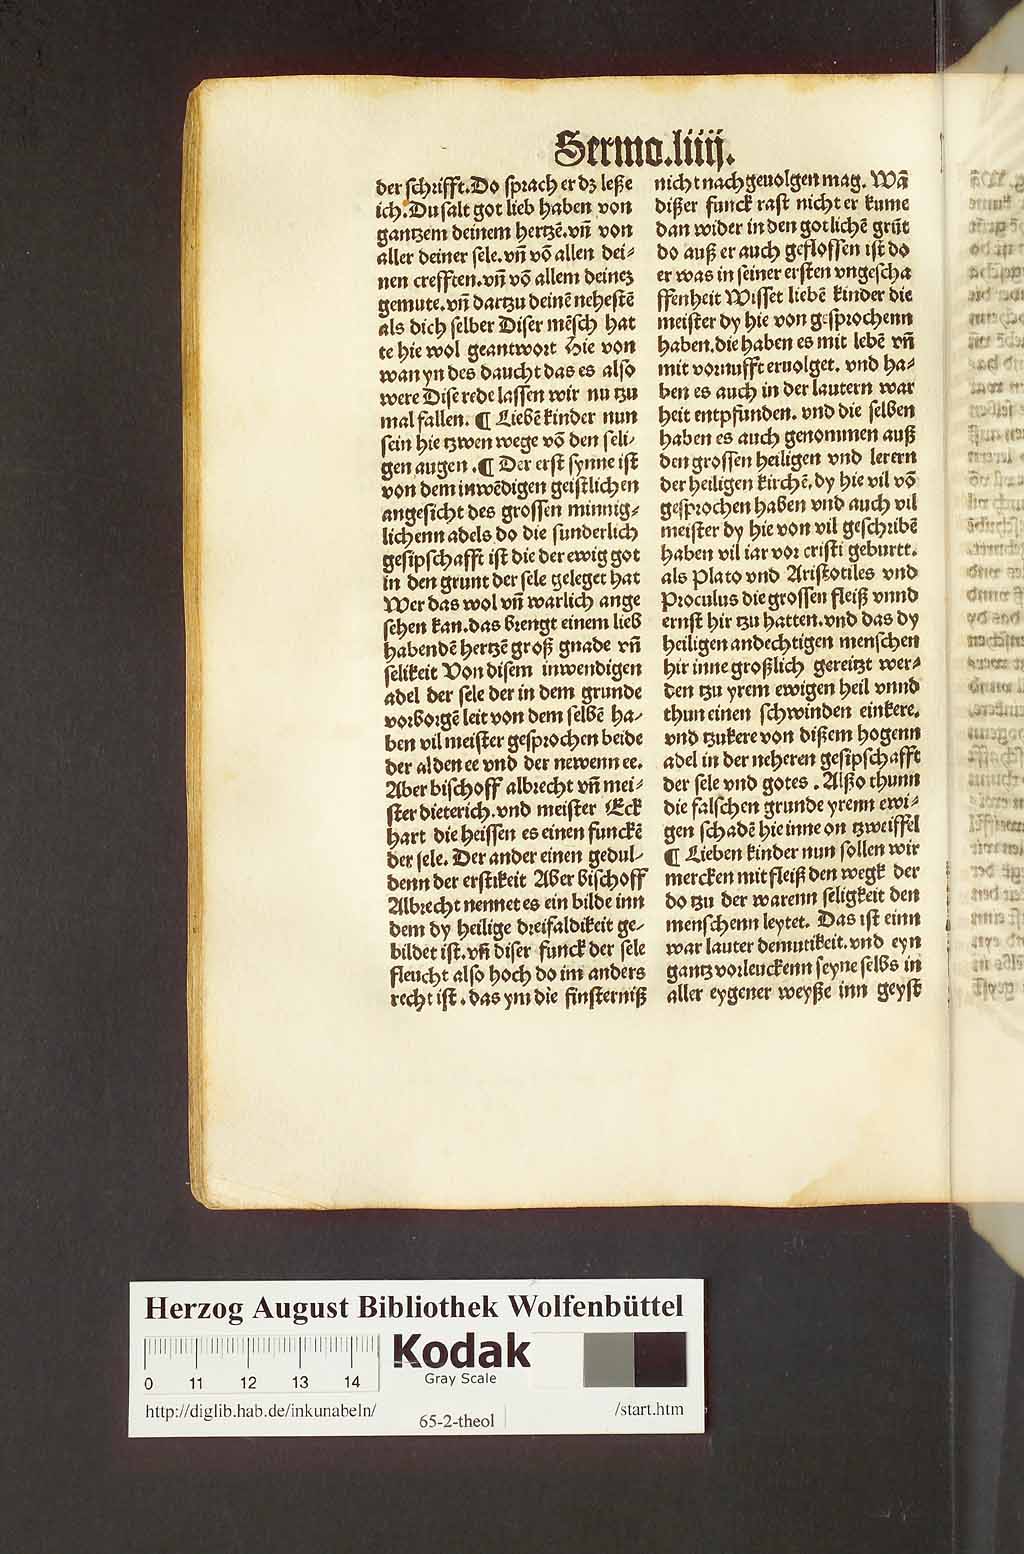 Sermo.liiij.
der schrifft.Do sprach er dz leße
ich.Du salt got lieb haben von
gantzem deinem hertzē.vñ von
aller deiner sele.vñ vō allen dei⸗
nen crefften.vñ vō allem deinez
gemute.vñ dartzu deinē nehestē
als dich selber Diser mēsch hat
te hie wol geantwort Hie von
wan yn des daucht das es also
were Dise rede lassen wir nu tzu
mal fallen. ¶ Liebē kinder nun
sein hie tzwen wege vō den seli⸗
gen augen .¶ Der erst synne ist
von dem inwēdigen geistlichen
angesicht des grossen minnig⸗
lichenn adels do die sunderlich
gesipschafft ist die der ewig got
in den grunt der sele geleget hat
Wer das wol vñ warlich ange
sehen kan.das brengt einem lieb
habendē hertzē groß gnade vñ
selikeit Von disem inwendigen
adel der sele der in dem grunde
vorborgē leit von dem selbē ha⸗
ben vil meister gesprochen beide
der alden ee vnd der newenn ee.
Aber bischoff albrecht vñ mei⸗
ster dieterich.vnd meister Eck
hart die heissen es einen funckē
der sele. Der ander einen gedul⸗
denn der erstikeit Aber bischoff
Albrecht nennet es ein bilde inn
dem dy heilige dreifaldikeit ge⸗
bildet ist.vñ diser funck der sele
fleucht also hoch do im anders
recht ist . das ym die finsterniß
nicht nachgeuolgen mag. Wā
dißer funck rast nicht er kume
dan wider in den gotlichē grūt
do auß er auch geflossen ist do
er was in seiner ersten vngescha
ffenheit Wisset liebē kinder die
meister dy hie von gesprochenn
haben.die haben es mit lebē vñ
mit vornufft eruolget. vnd ha⸗
ben es auch in der lautern war
heit entpfunden. vnd die selben
haben es auch genommen auß
den grossen heiligen vnd lerern
der heiligen kirchē, dy hie vil vō
gesprochen haben vnd auch vil
meister dy hie von vil geschribē
haben vil iar vor cristi geburtt.
als Plato vnd Aristotiles vnd
Proculus die grossen fleiß vnnd
ernst hir tzu hatten.vnd das dy
heiligen andechtigen menschen
hir inne großlich gereitzt wer⸗
den tzu yrem ewigen heil vnnd
thun einen schwinden einkere.
vnd tzukere von dißem hogenn
adel in der neheren gesipschafft
der sele vnd gotes . Alßo thunn
die falschen grunde yrenn ewi⸗
gen schadē hie inne on tzweiffel
¶ Lieben kinder nun sollen wir
mercken mit fleiß den wegk der
do tzu der warenn seligkeit den
menschenn leytet. Das ist einn
war lauter demutikeit.vnd eyn
gantz vorleuckenn seyne selbs in
aller eygener weyße inn geyst
Herzog August Bibliothek Wolfenbüttel
Kodak
Gray Scale
0 11 12 13 14
http://diglib.hab.de/inkunabeln/
65-2-theol
/start.htm